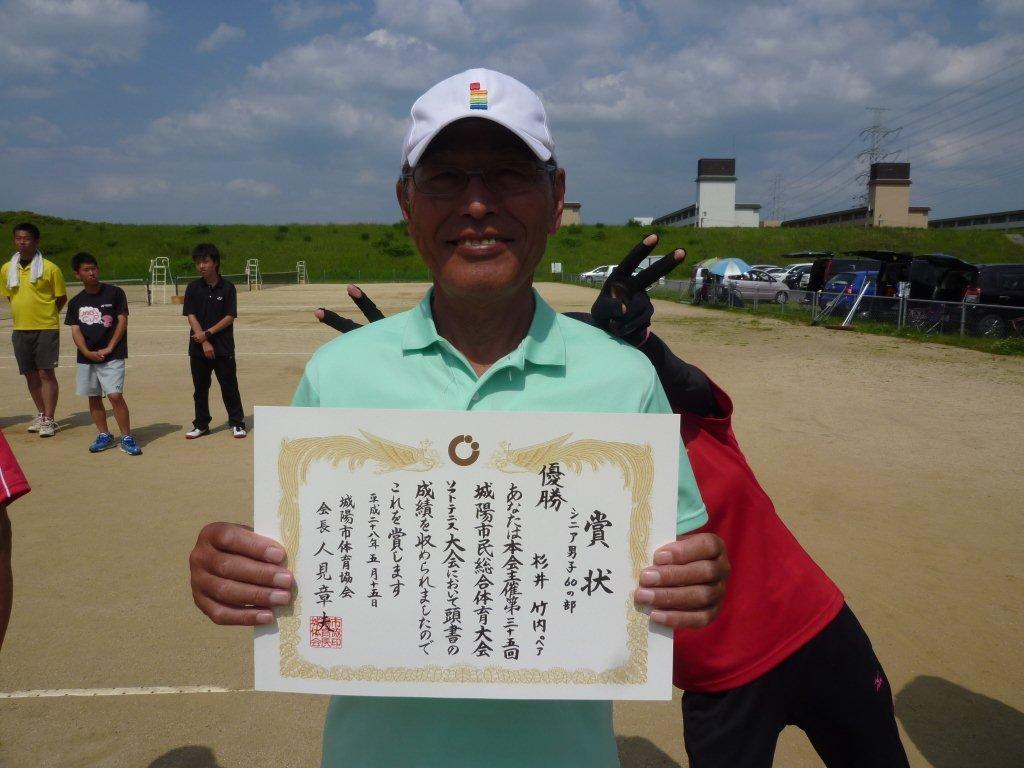 賞状
シニア男子60の部
優勝
杉井 竹内 ペア
あなたは本会主催第三十五回
城陽市民総合体育大会
ソフトテニス大会において頭書の
成績を収められましたので
これを賞します
平成二十八年五月十五日
城陽市体育協会
会長 人見章夫